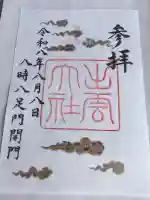 參拝
出雲
大社
令和八年八月八日
八時八足門開門